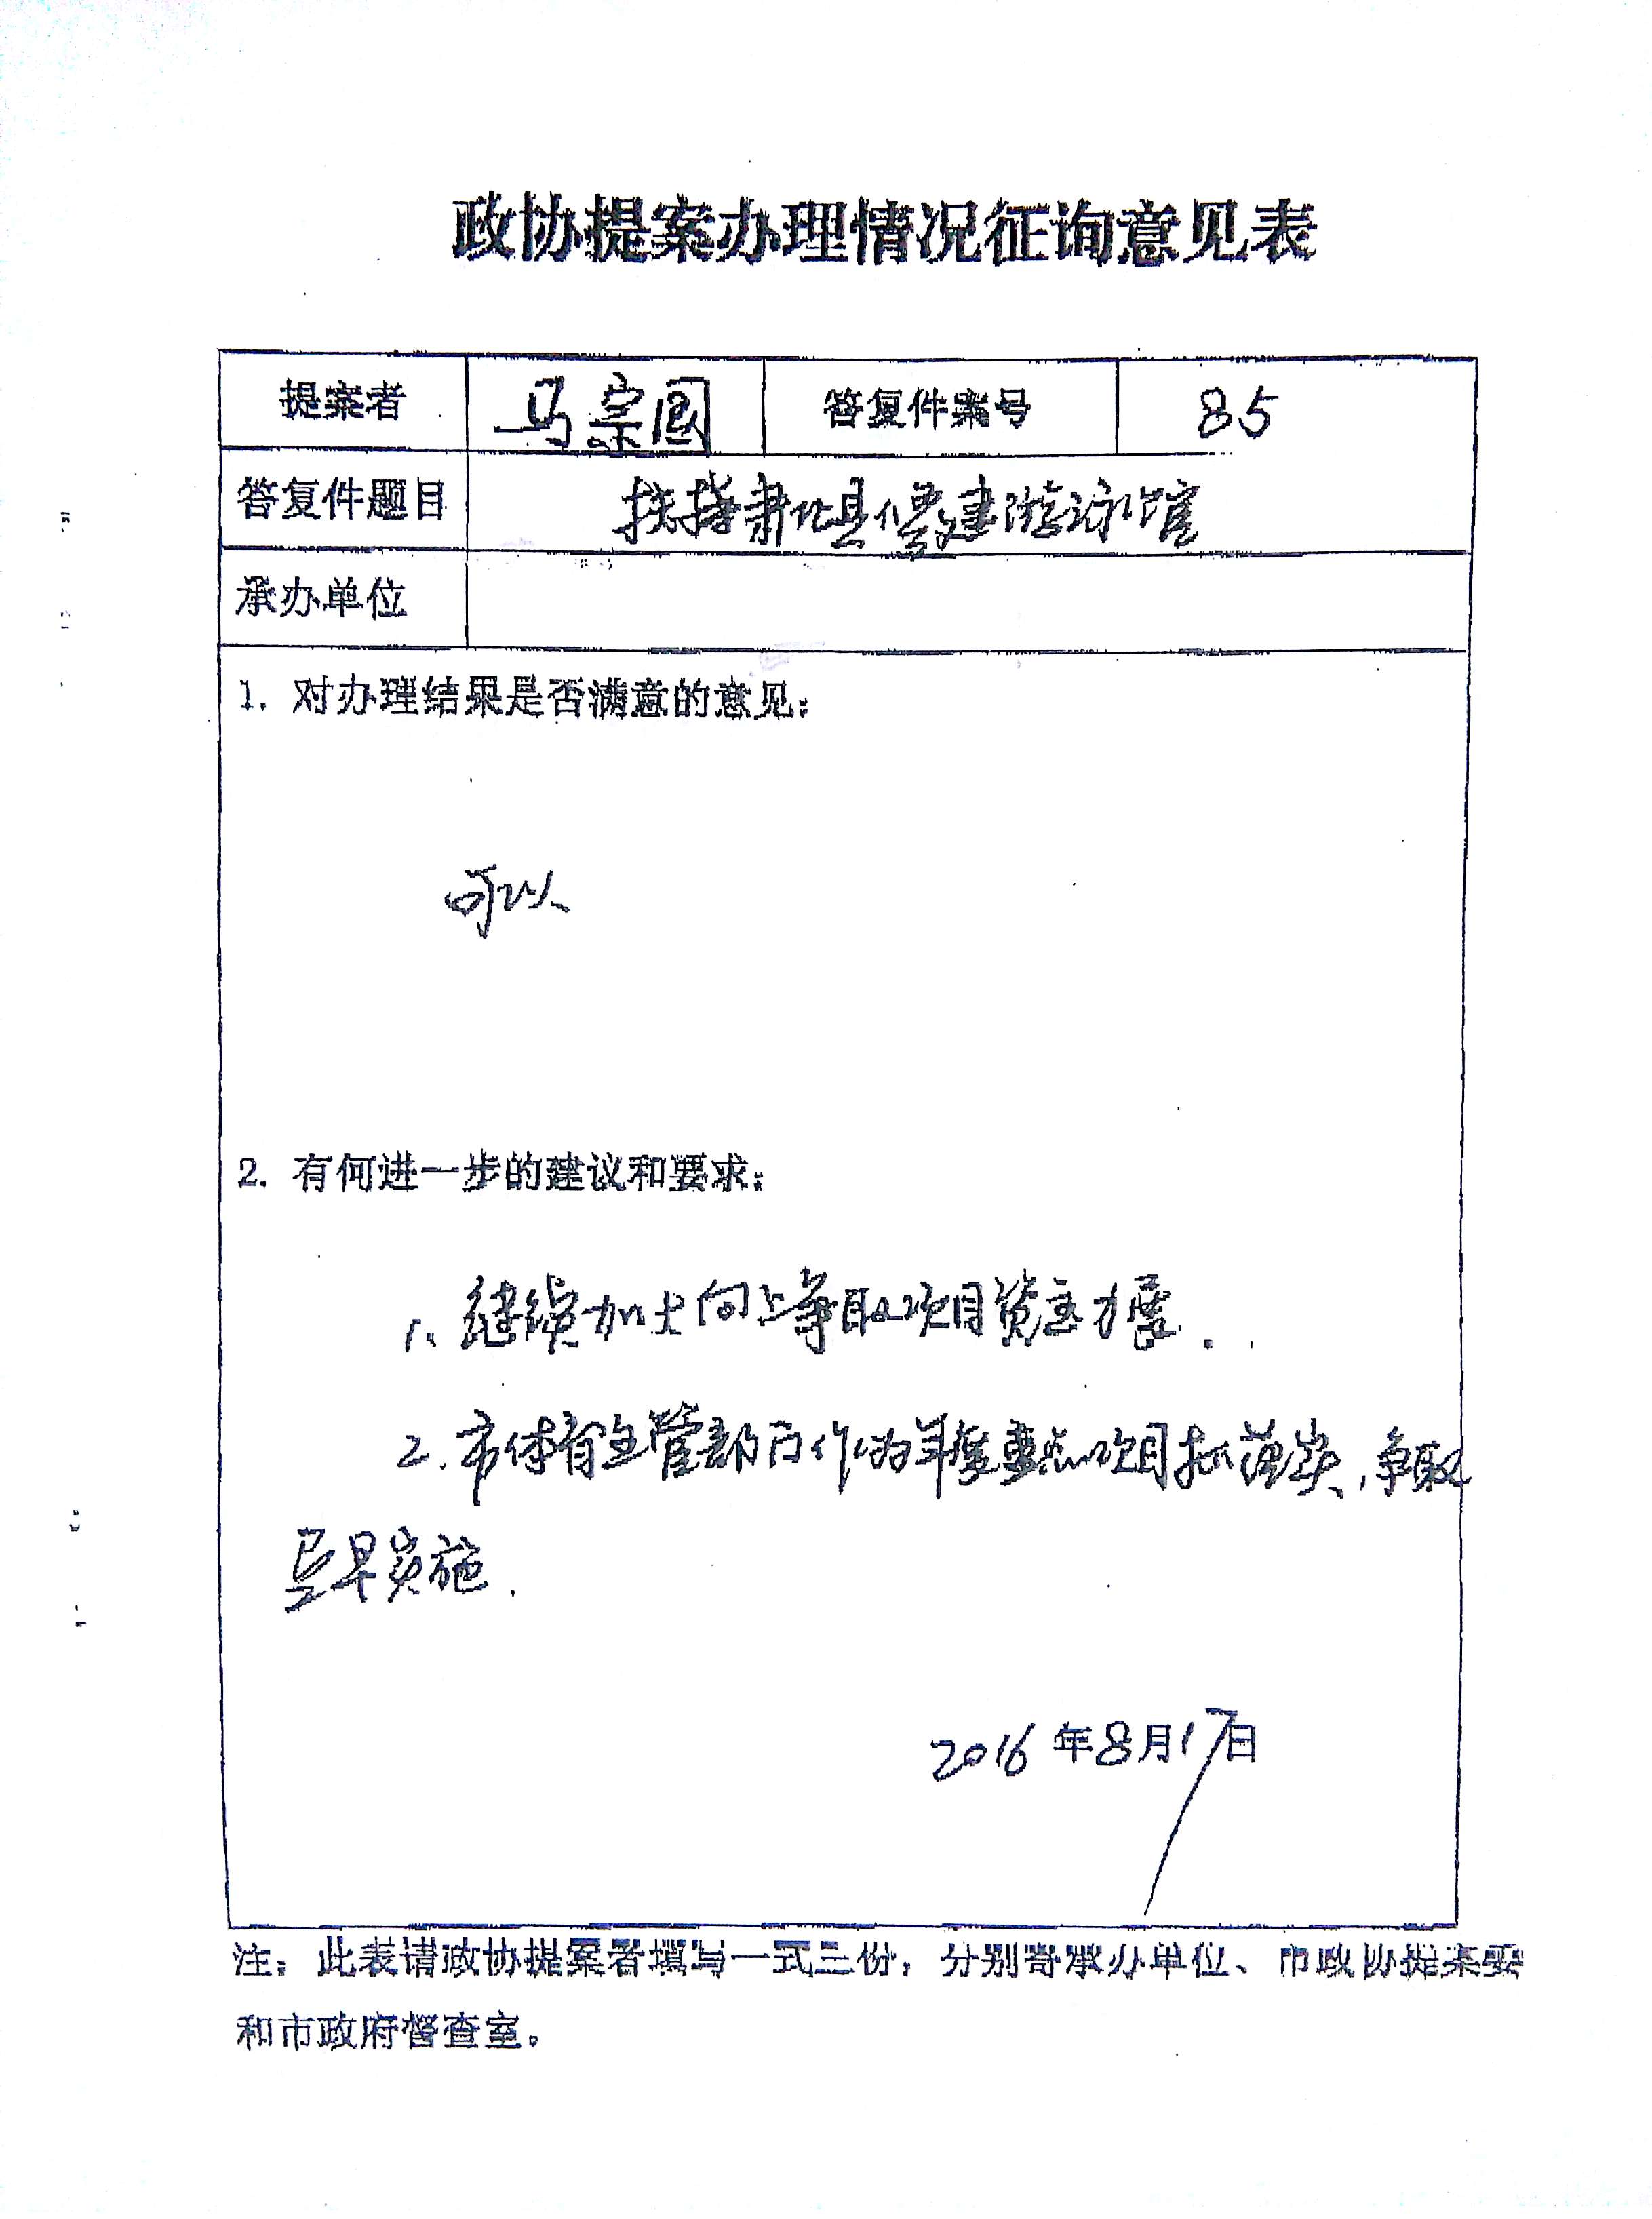 政协提案办理情况征询意见表
提案者 马宗国 答复件案号 85
答复件题目 扶持肃北县修建游泳馆
承办单位
1. 对办理结果是否满意的意见：
可以
2. 有何进一步的建议和要求：
1、继续加大向上争取项目资金力度.
2.市体育主管部门作为年度重点项目抓落实,争取
尽早实施.
2016年8月17日
注：此表请政协提案者填写一式三份，分别寄承办单位、市政协提案委
和市政府督查室。